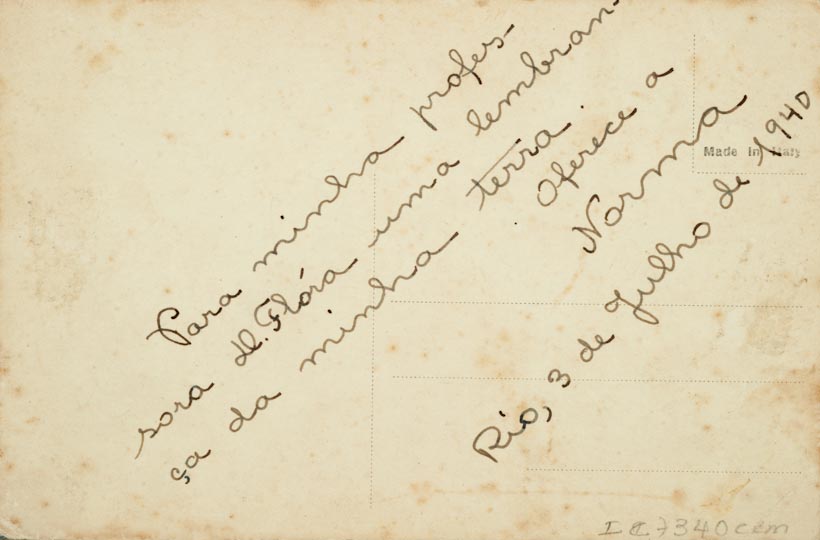 Para minha profes-
sora d. Flóra uma lembran-
ça da minha terra.
Oferece a
Norma
Rio, 3 de Julho de 1940
Made in Italy